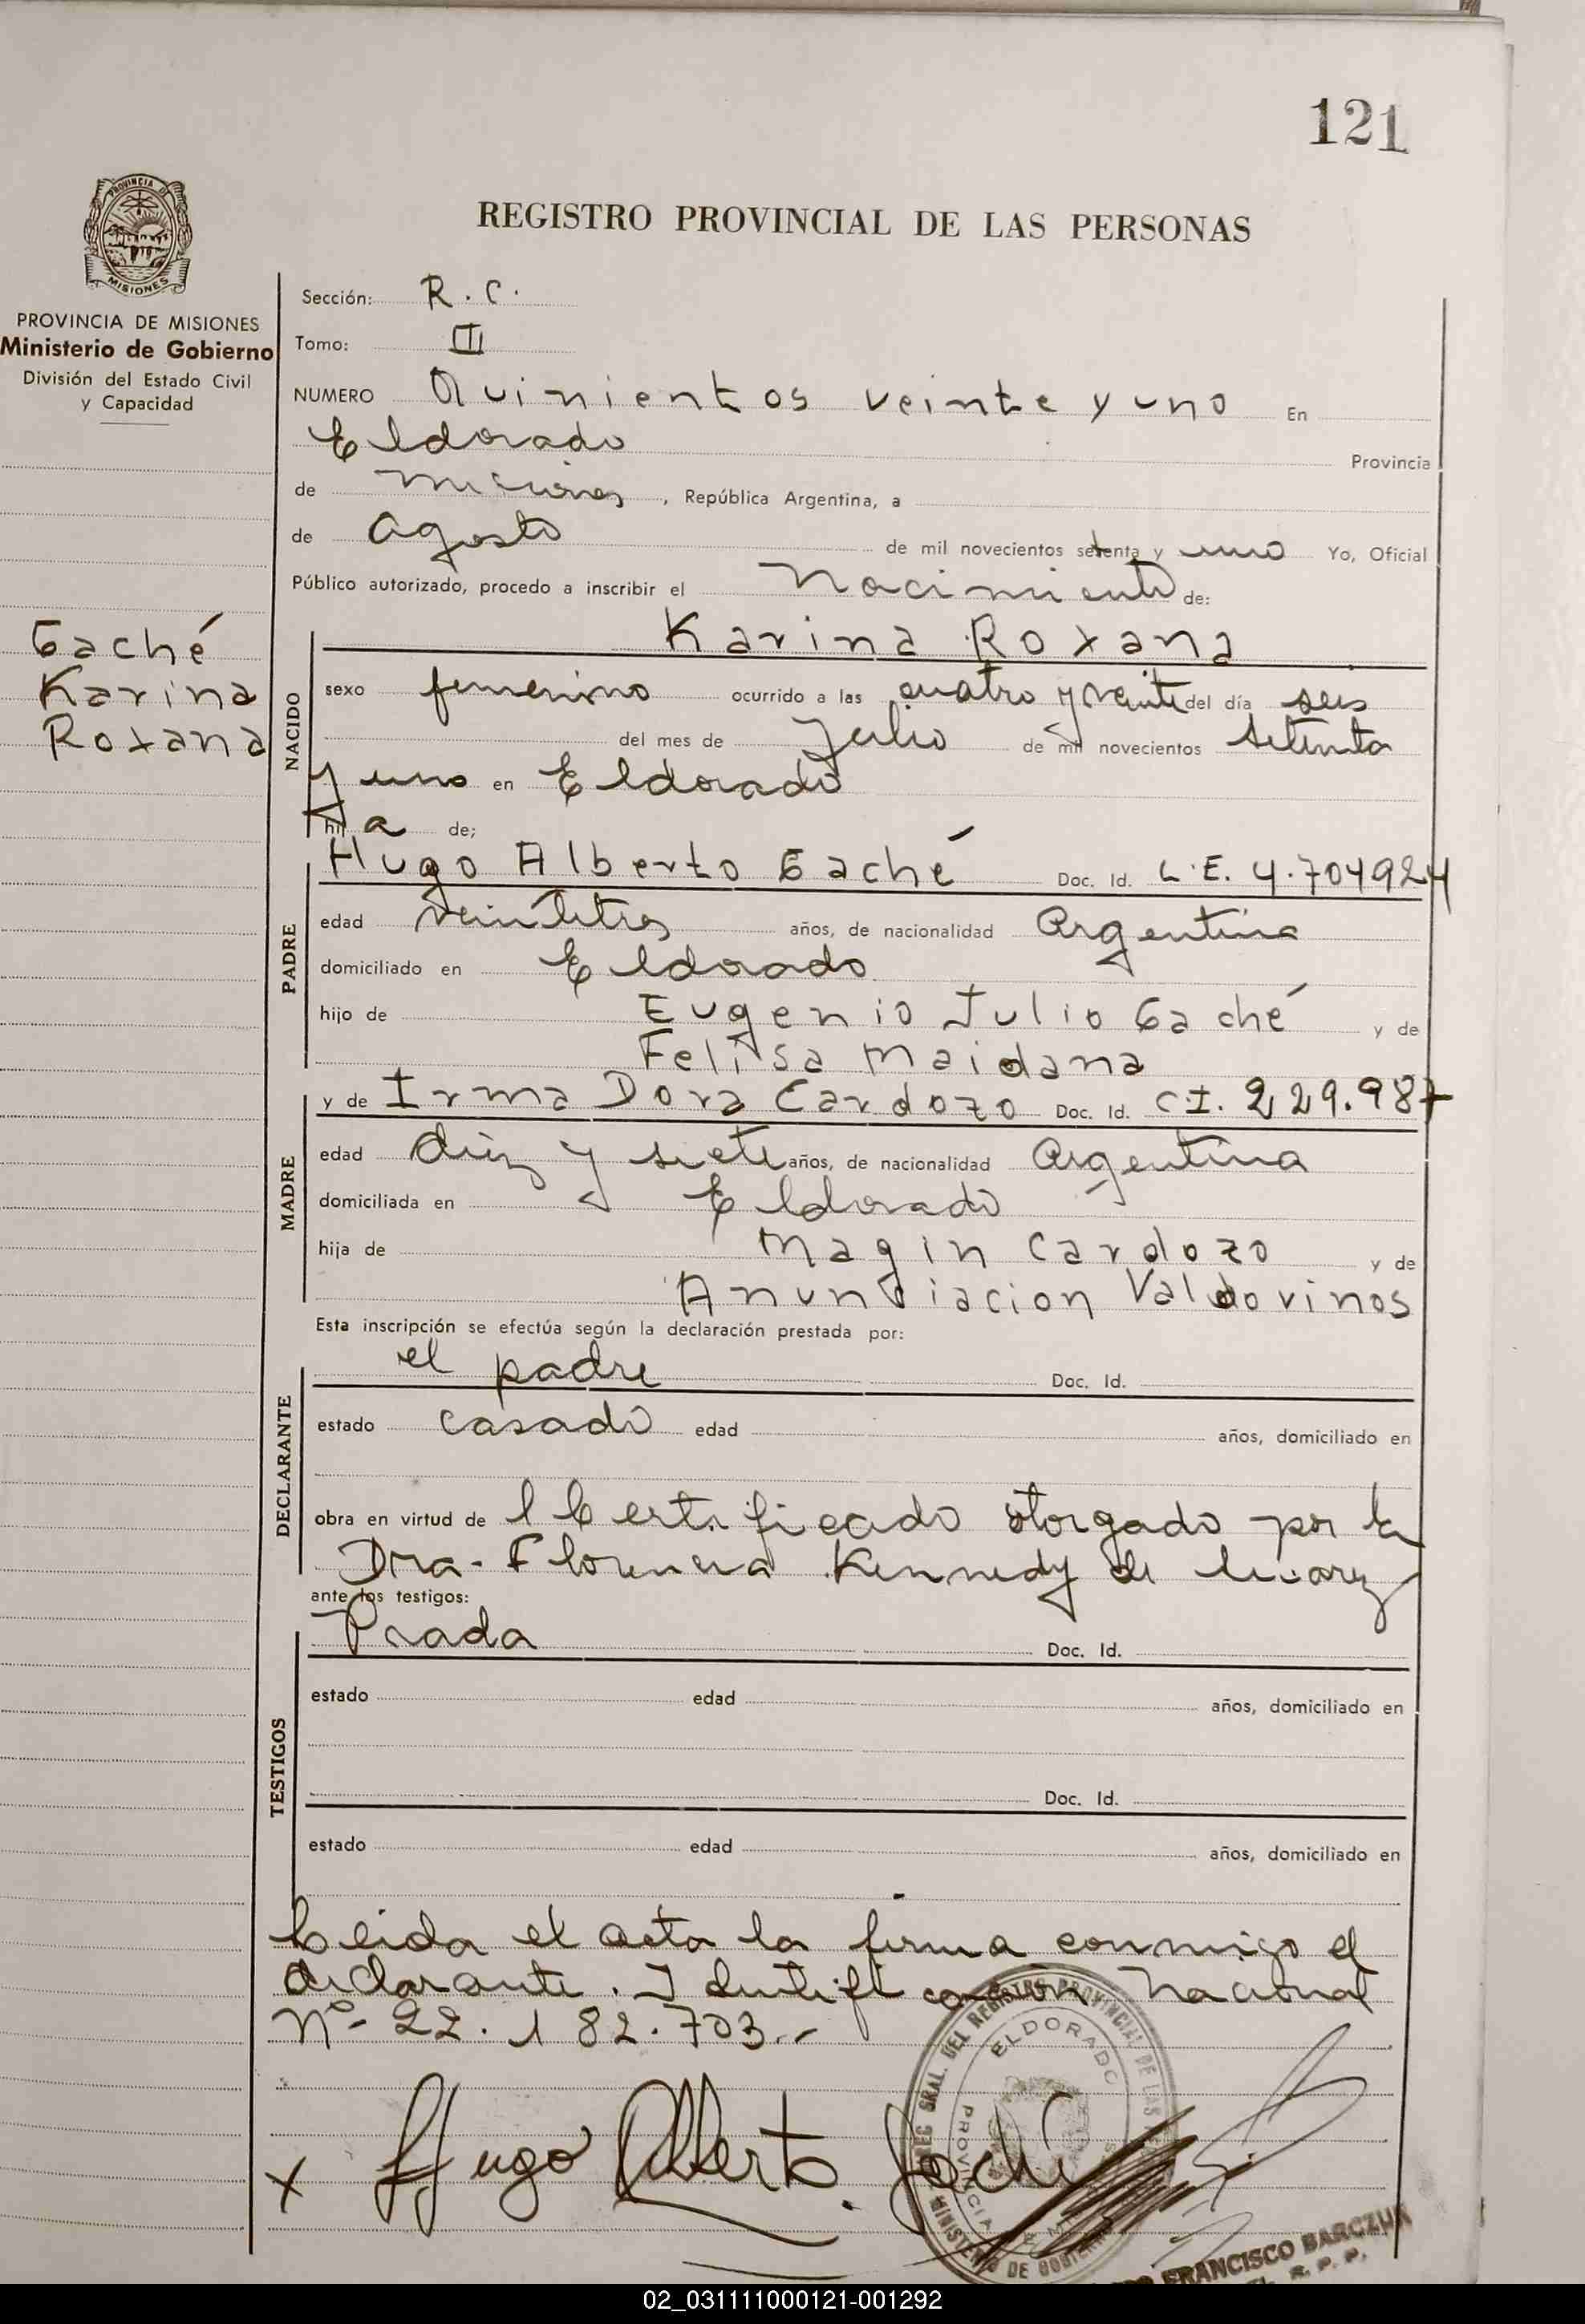 121
REGISTRO PROVINCIAL DE LAS PERSONAS
PROVINCIA DE MISIONES
PROVINCIA DE MISIONES
Ministerio de Gobierno
División del Estado Civil
y Capacidad
Gaché
Karina
Roxana
Sección: R. C.
Tomo: III
NUMERO Quinientos veinte y uno En
Eldorado Provincia
de Misiones, República Argentina, a
de agosto de mil novecientos setenta y uno Yo, Oficial
Público autorizado, procedo a inscribir el Nacimiento de:
NACIDO
Karina Roxana
sexo femenino ocurrido a las cuatro y veinte del día seis
del mes de Julio de mil novecientos setenta
y uno en Eldorado
hij a de;
PADRE
Hugo Alberto Gaché Doc. Id. L.E. 4.704924
edad veintitres años, de nacionalidad Argentina
domiciliado en Eldorado
hijo de Eugenio Julio Gaché y de
Felisa Maidana
MADRE
y de Irma Dora Cardozo Doc. Id. C.I. 229.987
edad diez y siete años, de nacionalidad Argentina
domiciliada en Eldorado
hija de Magin Cardozo y de
Anunciacion Valdovinos
Esta inscripción se efectúa según la declaración prestada por:
DECLARANTE
el padre Doc. Id.
estado casado edad años, domiciliado en
obra en virtud de l Certificado otorgado por la
Dra. Florencia Kennedy de
ante los testigos:
TESTIGOS
Prada Doc. Id.
estado edad años, domiciliado en
Doc. Id.
estado edad años, domiciliado en
Leida el acta la firma conmigo el
declarante. Identificación Nacional
Nº 22.182.703.-
x Hugo Alberto Gaché
DEL REGISTRO PROVINCIAL DE LAS
ELDORADO
PROVINCIA
MINISTERIO DE GOBIERNO
FRANCISCO BARCZUK
R. P. P.
02_031111000121-001292